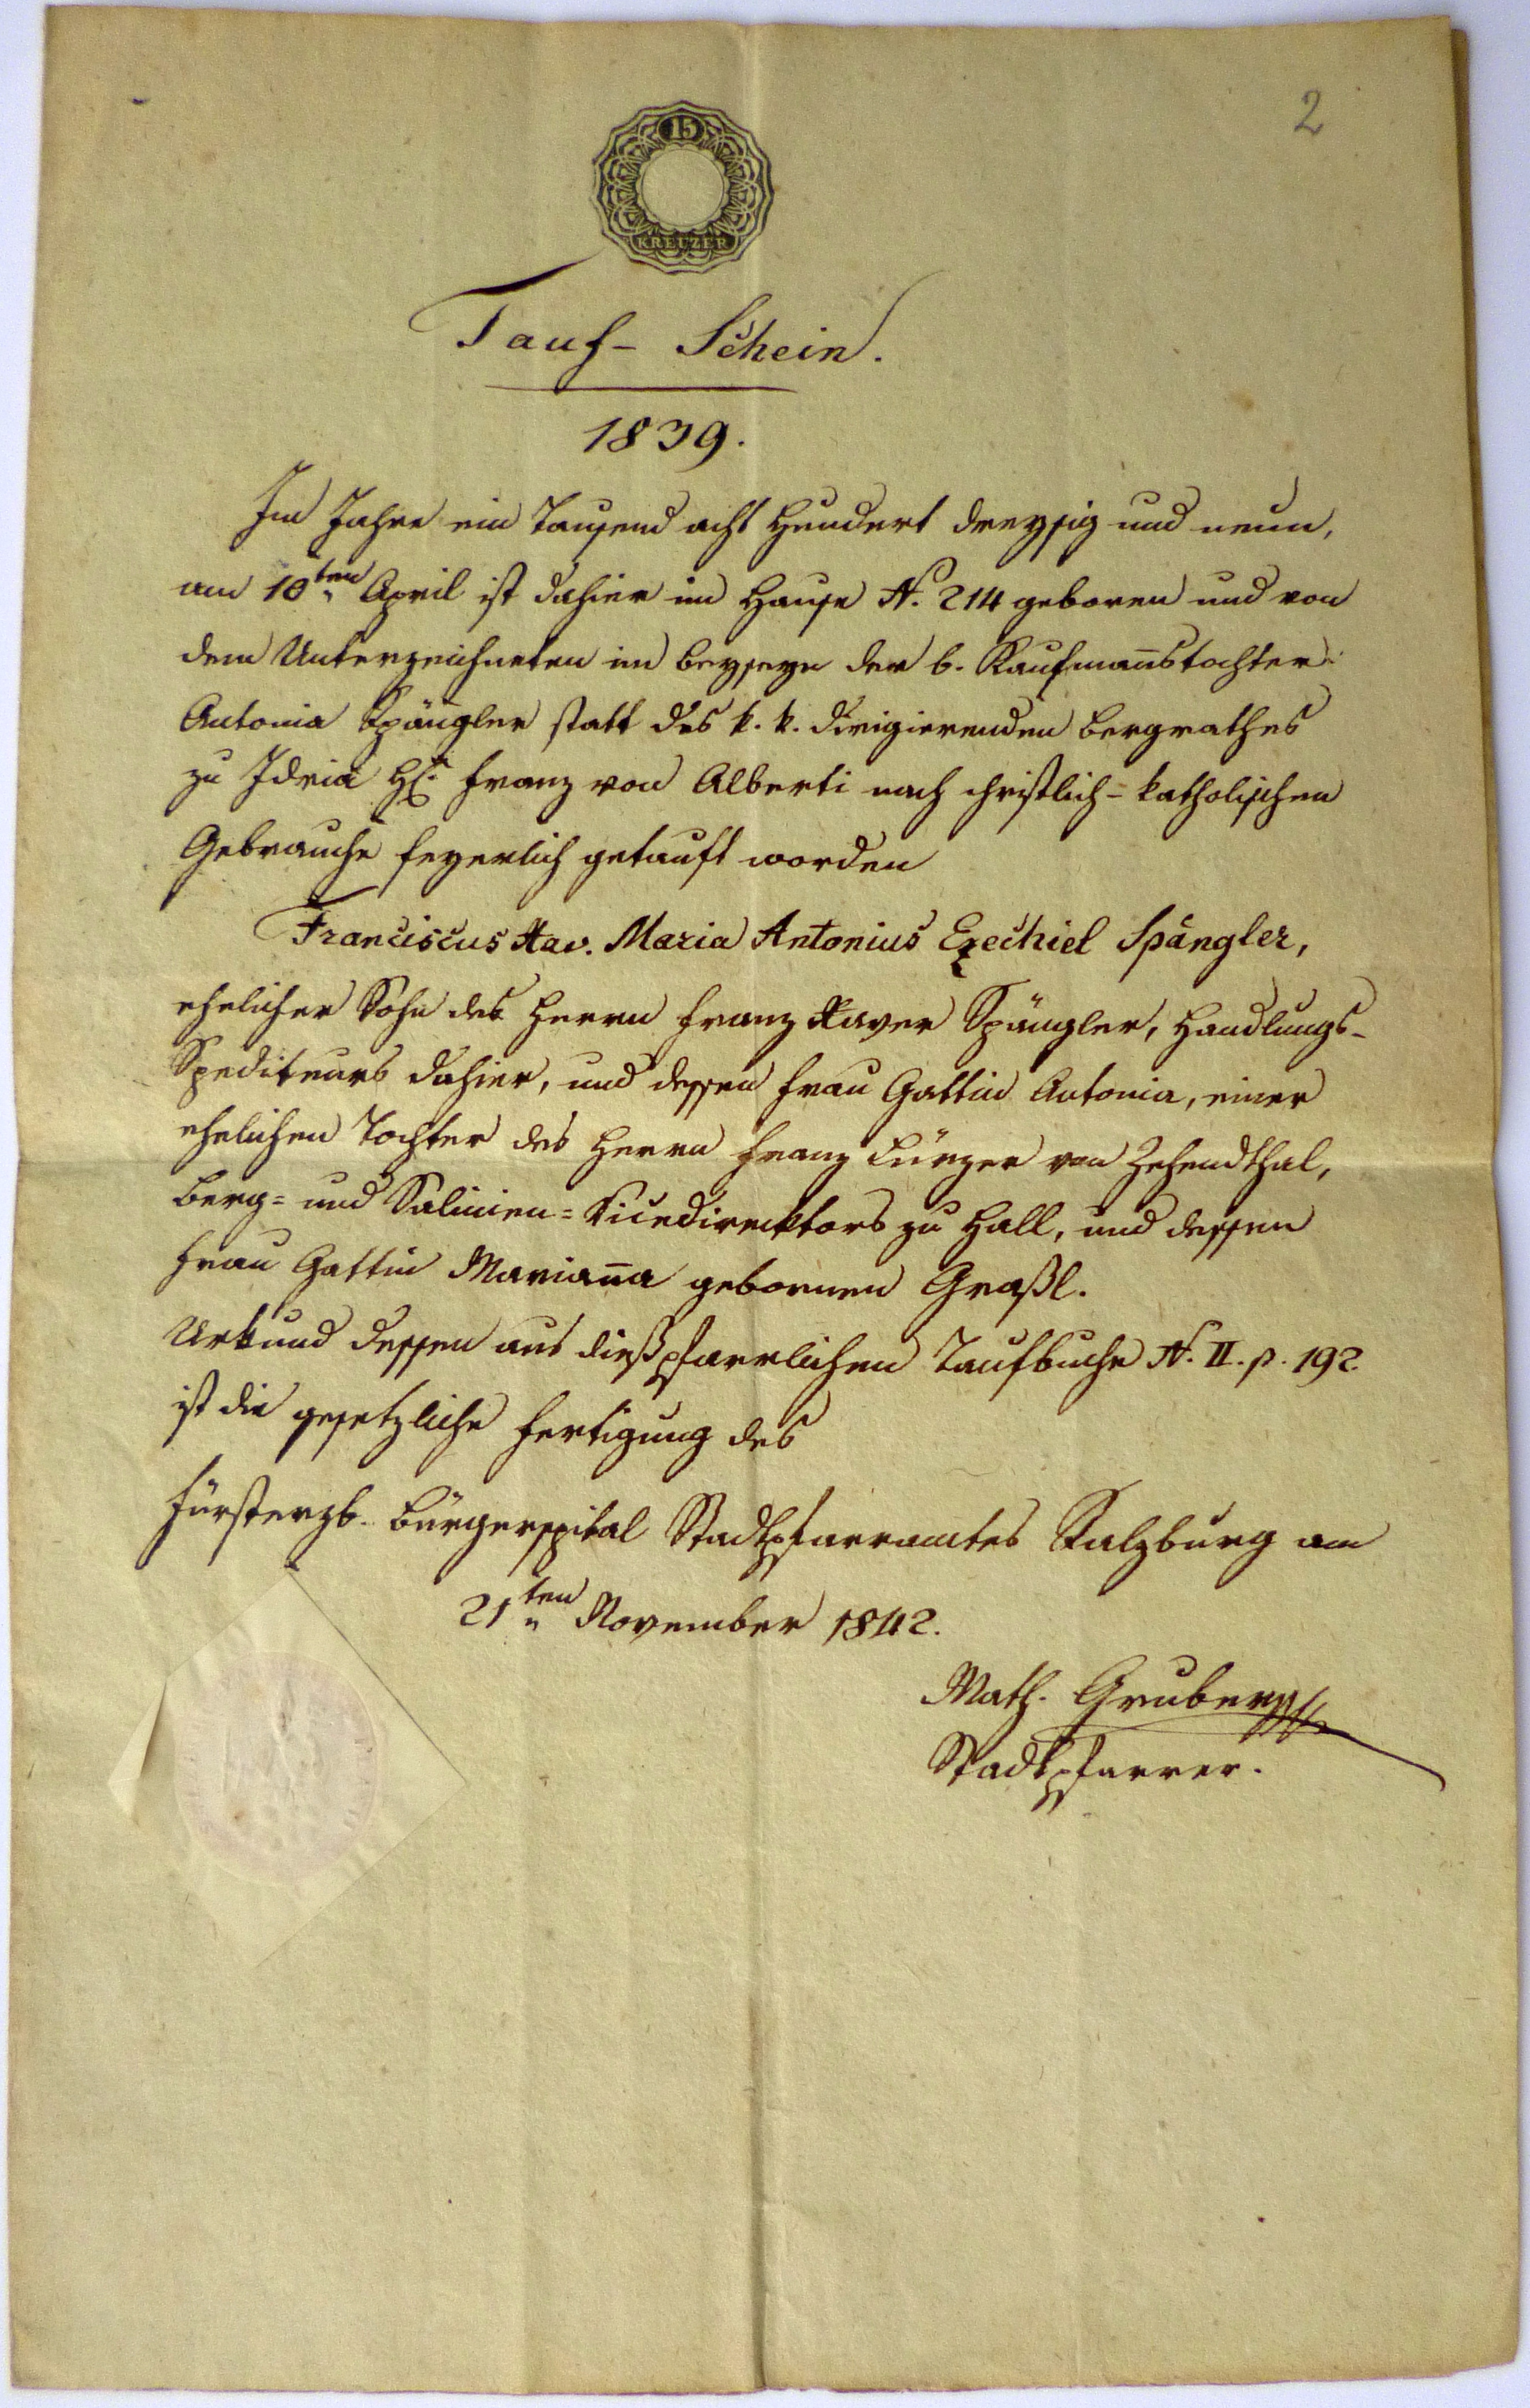 2
15
KREUZER
Tauf- Schein.
1839.
Im Jahre ein Tausend acht Hundert dreyssig und neun,
am 10ten April ist dahier im Hause N. 214 geboren und von
dem Unterzeichneten im Beyseyn der b. Kaufman̄stochter
Antonia Spängler statt des k. k. dirigierenden Bergrathes
zu Idria H. Franz von Alberti nach christlich-katholischen
Gebrauche feyerlich getauft worden
Franciscus Xav. Maria Antonius Ezechiel Spängler,
ehelicher Sohn des Herrn Franz Xaver Spängler, Handlungs-
Spediteurs dahier, und dessen Frau Gattin Antonia, einer
ehelichen Tochter des Herrn Franz Fürzer von Zehendthal,
Berg= und Salinien=Vicedirecktors zu Hall, und dessen
Frau Gattin Marian̄a gebornen Graßl.
Urkund dessen aus dießpfarrlichem Taufbuche N. II. p. 192.
ist die gesetzliche Fertigung des
Fürsterzb. Bürgerspital Stadtpfarramtes Salzburg am
21ten November 1842.
Math. Gruber
Stadtpfarrer.